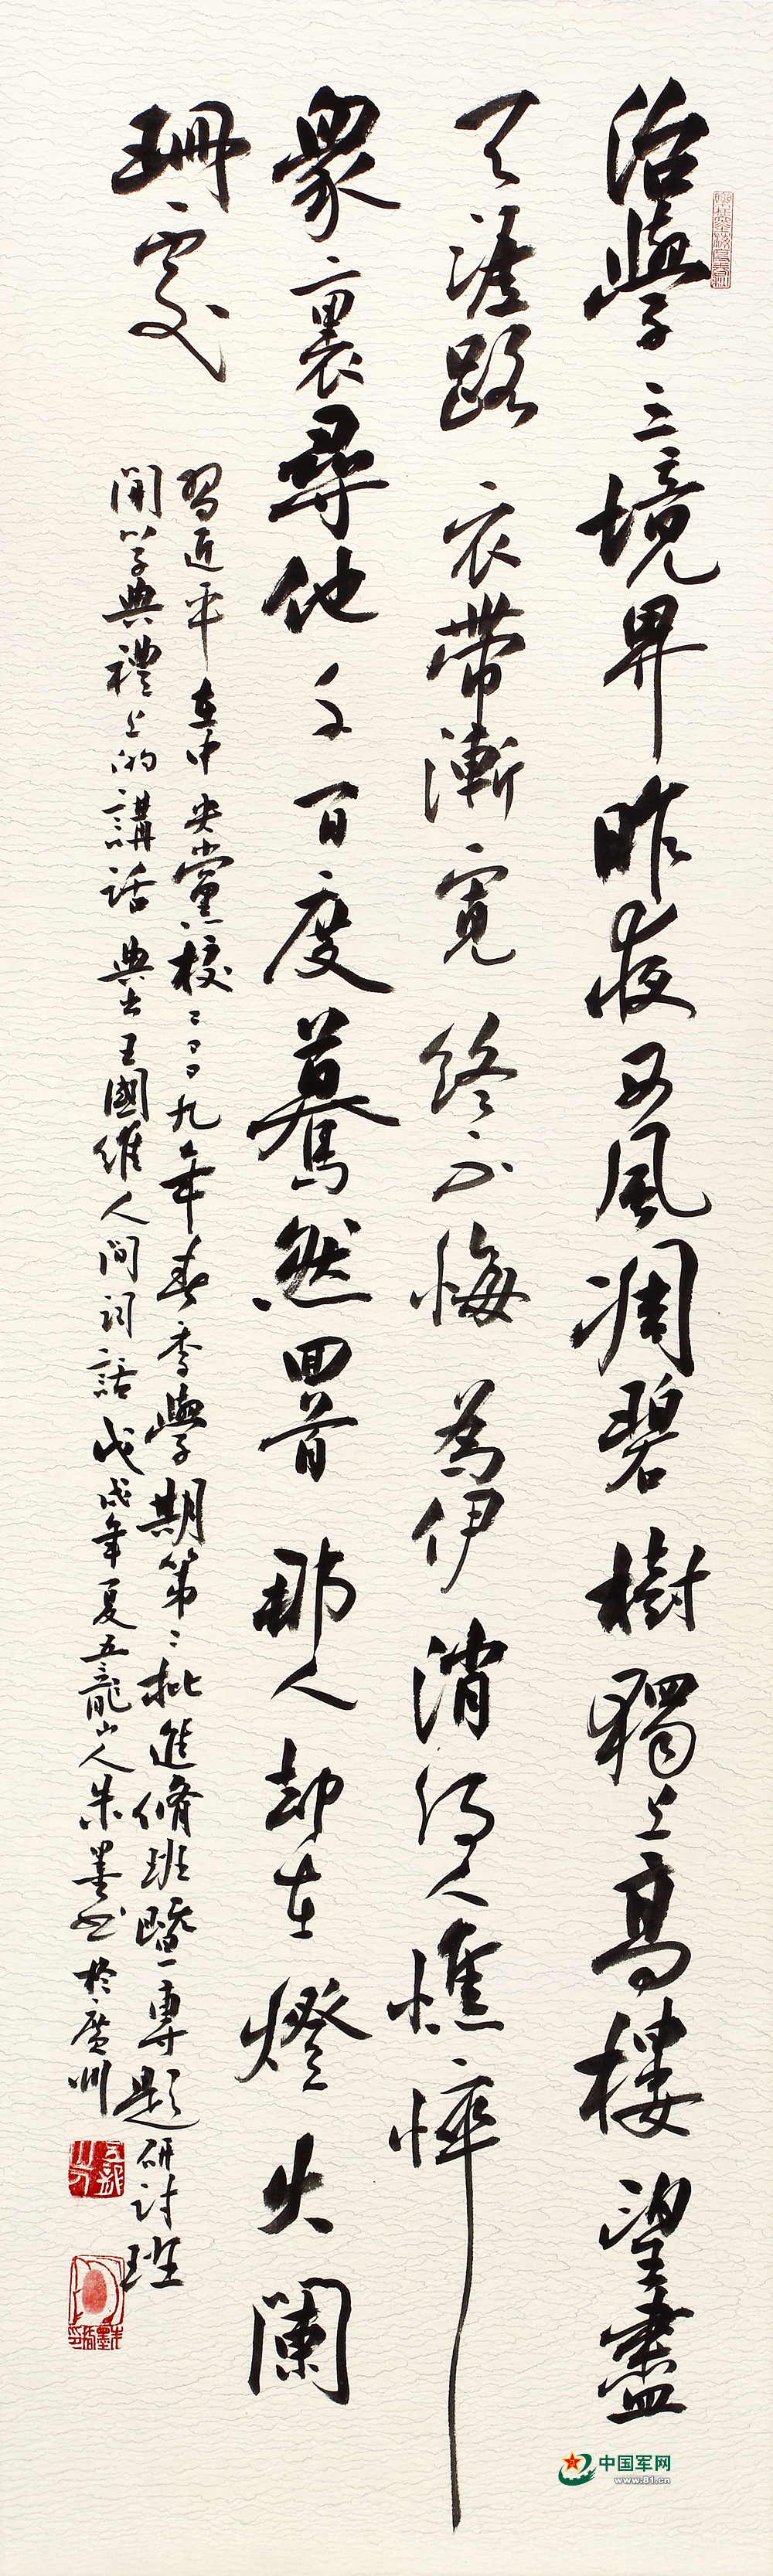 治學三境界昨夜西風凋碧樹獨上高樓望盡
天涯路衣帶漸寬終不悔為伊消得人憔悴
衆裏尋他千百度驀然回首那人却在燈火闌
珊處
習近平在中央黨校二〇〇九年春季學期第二批進修班暨專題研討班
開學典禮上的講話典出王國維人間詞話戊戌年夏五龍山人朱墨書於廣州
中国军网
www.81.cn